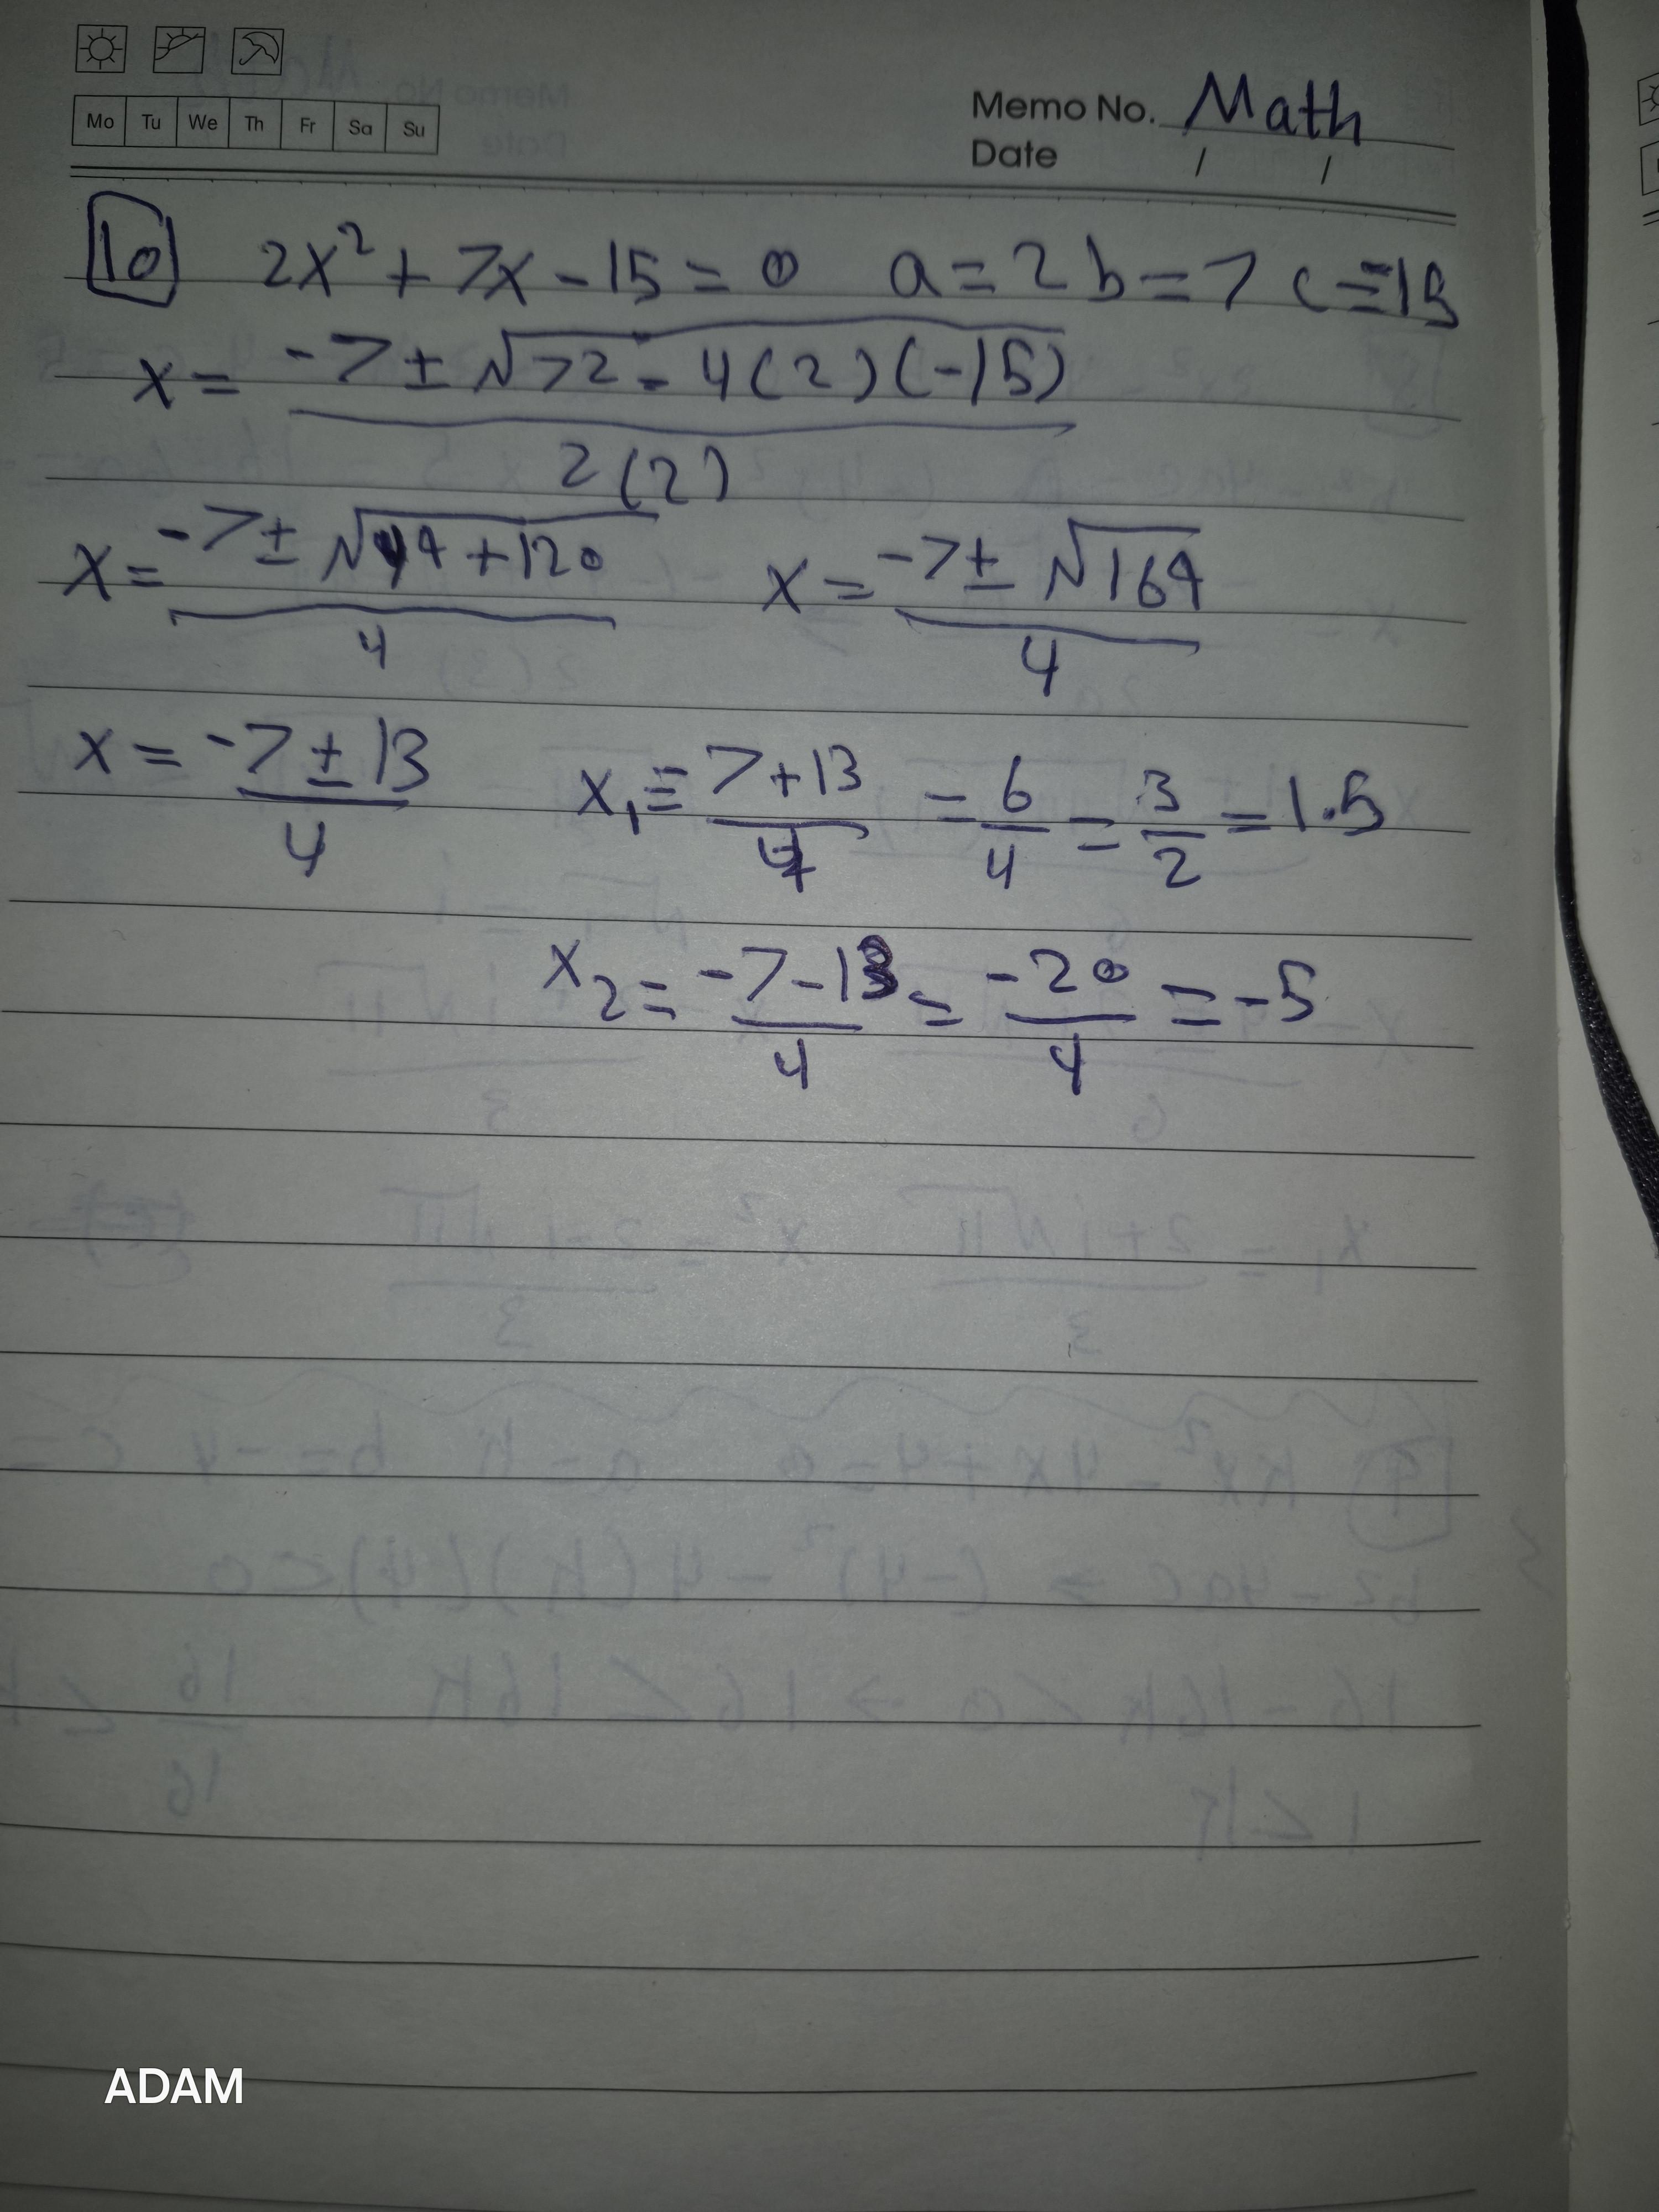 Mo Tu We Th Fr Sa Su
Memo No. Math
Date / /
10 2x² + 7x - 15 = 0 a = 2 b = 7 c = -15
x = -7 ± √72 - 4(2)(-15) / 2(2)
x = -7 ± √49 + 120 / 4 x = -7 ± √169 / 4
x = -7 ± 13 / 4 x₁ = -7 + 13 / 4 = 6/4 = 3/2 = 1.5
x₂ = -7 - 13 / 4 = -20 / 4 = -5
ADAM